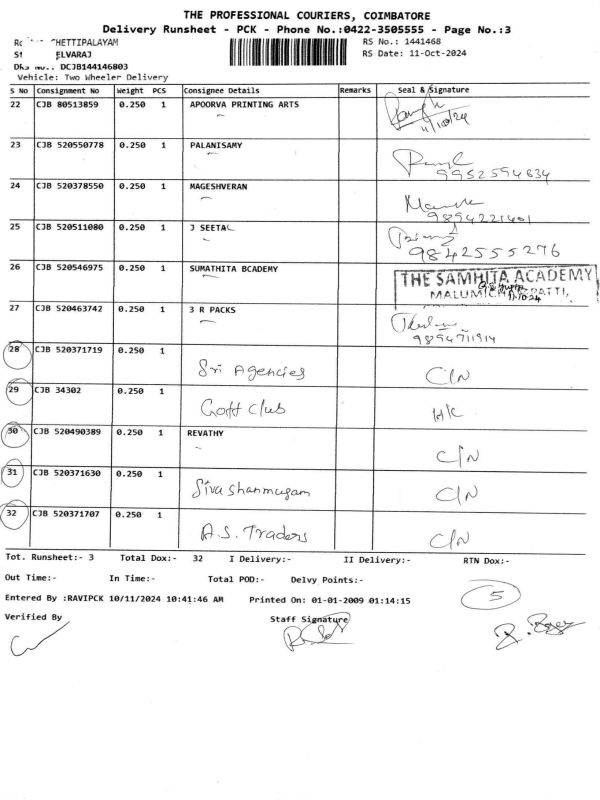 THE PROFESSIONAL COURIERS, COIMBATORE
Delivery Runsheet - PCK - Phone No.:0422-3505555 - Page No.:3
HETTIPALAYAM RS No.: 1441468
ELVARAJ RS Date: 11-Oct-2024
DRS No.: DCJB144146803
Vehicle: Two Wheeler Delivery
S No Consignment No Weight PCS Consignee Details Remarks Seal & Signature
22 CJB 80513859 0.250 1 APOORVA PRINTING ARTS
11/10/24
23 CJB 520550778 0.250 1 PALANISAMY
9952594834
24 CJB 520378550 0.250 1 MAGESHVERAN
9894221401
25 CJB 520511080 0.250 1 J SEETAL
9842555276
26 CJB 520546975 0.250 1 SUMATHITA BCADEMY THE SAMHITA ACADEMY
11.10.24
27 CJB 520463742 0.250 1 3 R PACKS
9894711914
28 CJB 520371719 0.250 1
Sri Agencies C/N
29 CJB 34302 0.250 1
Goff Club H/C
30 CJB 520490389 0.250 1 REVATHY
C/N
31 CJB 520371630 0.250 1
Siva shanmugam C/N
32 CJB 520371707 0.250 1
A.S. Traders C/N
Tot. Runsheet:- 3 Total Dox:- 32 I Delivery:- II Delivery:- RTN Dox:-
Out Time:- In Time:- Total POD:- Delvy Points:-
Entered By :RAVIPCK 10/11/2024 10:41:46 AM Printed On: 01-01-2009 01:14:15 5
Verified By Staff Signature